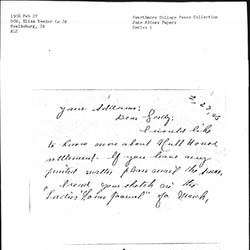 1906 Feb 27
DOW, Eliza Yemdor to JA
Swarthmore College Peace Collection
Jane Addams Papers
Series 1
Jane Addams:
Dear Lady:
I would like
to know more about Hull House
settlement. If you have any
printed matter please send the same,
I read your sketch in the
Ladies' Home Journal of March,